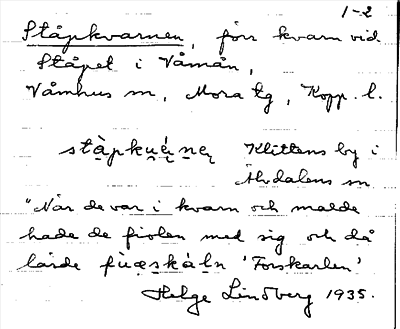 1-2
Ståpkvarnen, förr kvarn vid
Ståpet i Våmån,
Våmhus sn, Mora tg, Kopp. l.
stą̀pku̯éṇeṛ Klittens by i
Älvdalens sn
"När de var i kvarn och malde
hade de fiolen med sig och då
lärde fù̜æskàln 'Forskarlen'
Helge Lindberg 1935.